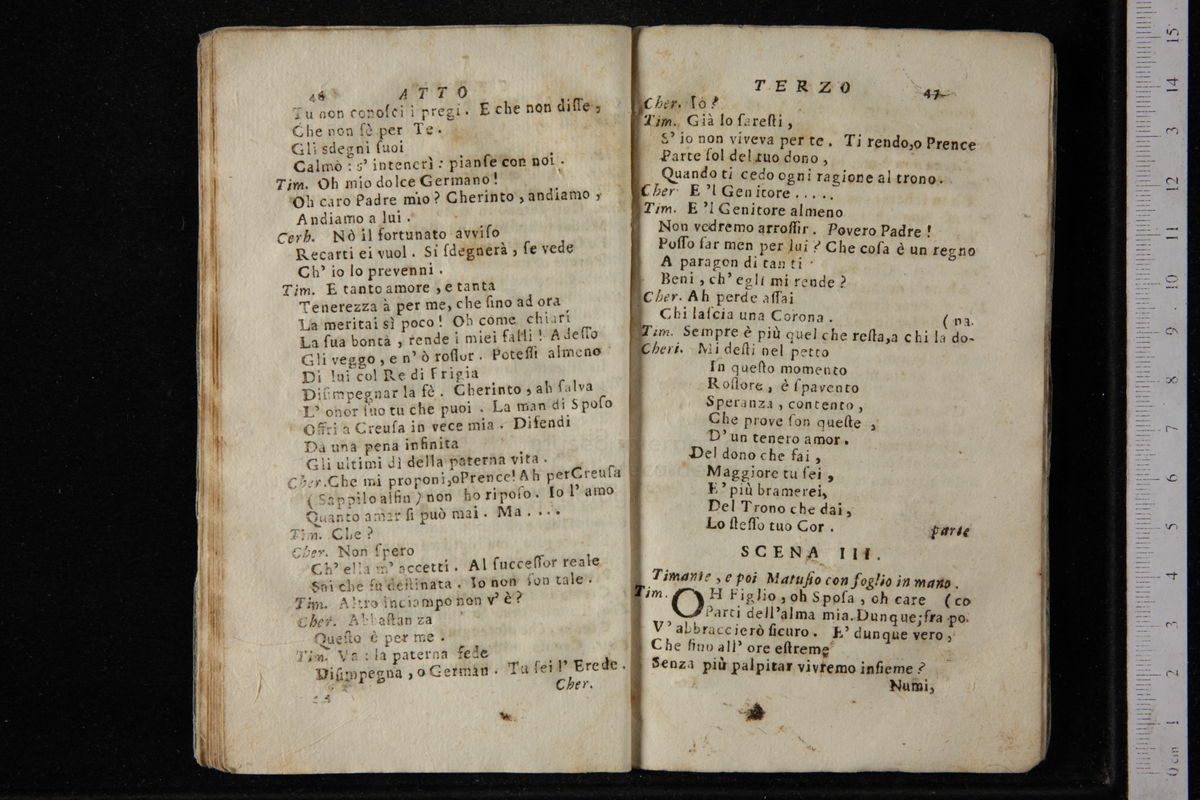 46 ATTO
Tu non conoſci i pregi. E che non diſſe,
Che non fè per Te.
Gli sdegni ſuoi
Calmò: s' intenerì: pianſe con noi.
Tim. Oh mio dolce Germano!
Oh caro Padre mio? Cherinto, andiamo,
Andiamo a lui.
Cerh. Nò il fortunato avviſo
Recarti ei vuol. Si ſdegnerà, ſe vede
Ch' io lo prevenni.
Tim. E tanto amore, e tanta
Tenerezza à per me, che fino ad ora
La meritai sì poco! Oh come chiari
La ſua bontà, rende i miei falli! Adeſſo
Gli veggo, e n' ò roſſor. Poteſſi almeno
Di lui col Re di Frigia
Diſimpegnar la fè. Cherinto, ah ſalva
L' onor ſuo tu che puoi. La man di Spoſo
Offri a Creuſa in vece mia. Difendi
Da una pena infinita
Gli ultimi dì della paterna vita.
Cher. Che mi proponi, o Prence! Ah per Creuſa
(Sappilo alfin) non ho ripoſo. Io l' amo
Quanto amar ſi può mai. Ma....
Tim. Che?
Cher. Non ſpero
Ch' ella m' accetti. Al ſucceſſor reale
Sai che fu deſtinata. Io non ſon tale.
Tim. Altro inciampo non v' è?
Cher. Abbaſtanza
Queſto è per me.
Tim. Va: la paterna fede
Diſimpegna, o German. Tu ſei l' Erede.
Cher.
TERZO 47
Cher. Io?
Tim. Già lo ſareſti,
S' io non viveva per te. Ti rendo, o Prence
Parte ſol del tuo dono,
Quando ti cedo ogni ragione al trono.
Cher E 'l Genitore.....
Tim. E 'l Genitore almeno
Non vedremo arroſſir. Povero Padre!
Poſſo far men per lui? Che coſa è un regno
A paragon di tanti
Beni, ch' egli mi rende?
Cher. Ah perde aſſai
Chi laſcia una Corona. (na.
Tim. Sempre è più quel che reſta, a chi la do-
Cheri. Mi deſti nel petto
In queſto momento
Roſſore, è ſpavento
Speranza, contento,
Che prove ſon queſte,
D' un tenero amor.
Del dono che fai,
Maggiore tu ſei,
E' più bramerei,
Del Trono che dai,
Lo ſteſſo tuo Cor. parte
SCENA III.
Timante, e poi Matuſio con foglio in mano.
Tim. OH Figlio, oh Spoſa, oh care (co
Parti dell' alma mia. Dunque; fra po.
V' abbraccierò ſicuro. E' dunque vero,
Che fino all' ore eſtreme
Senza più palpitar vivremo inſieme?
Numi,
15
14
3
12
11
10
9
8
7
6
5
4
3
2
1
0 cm